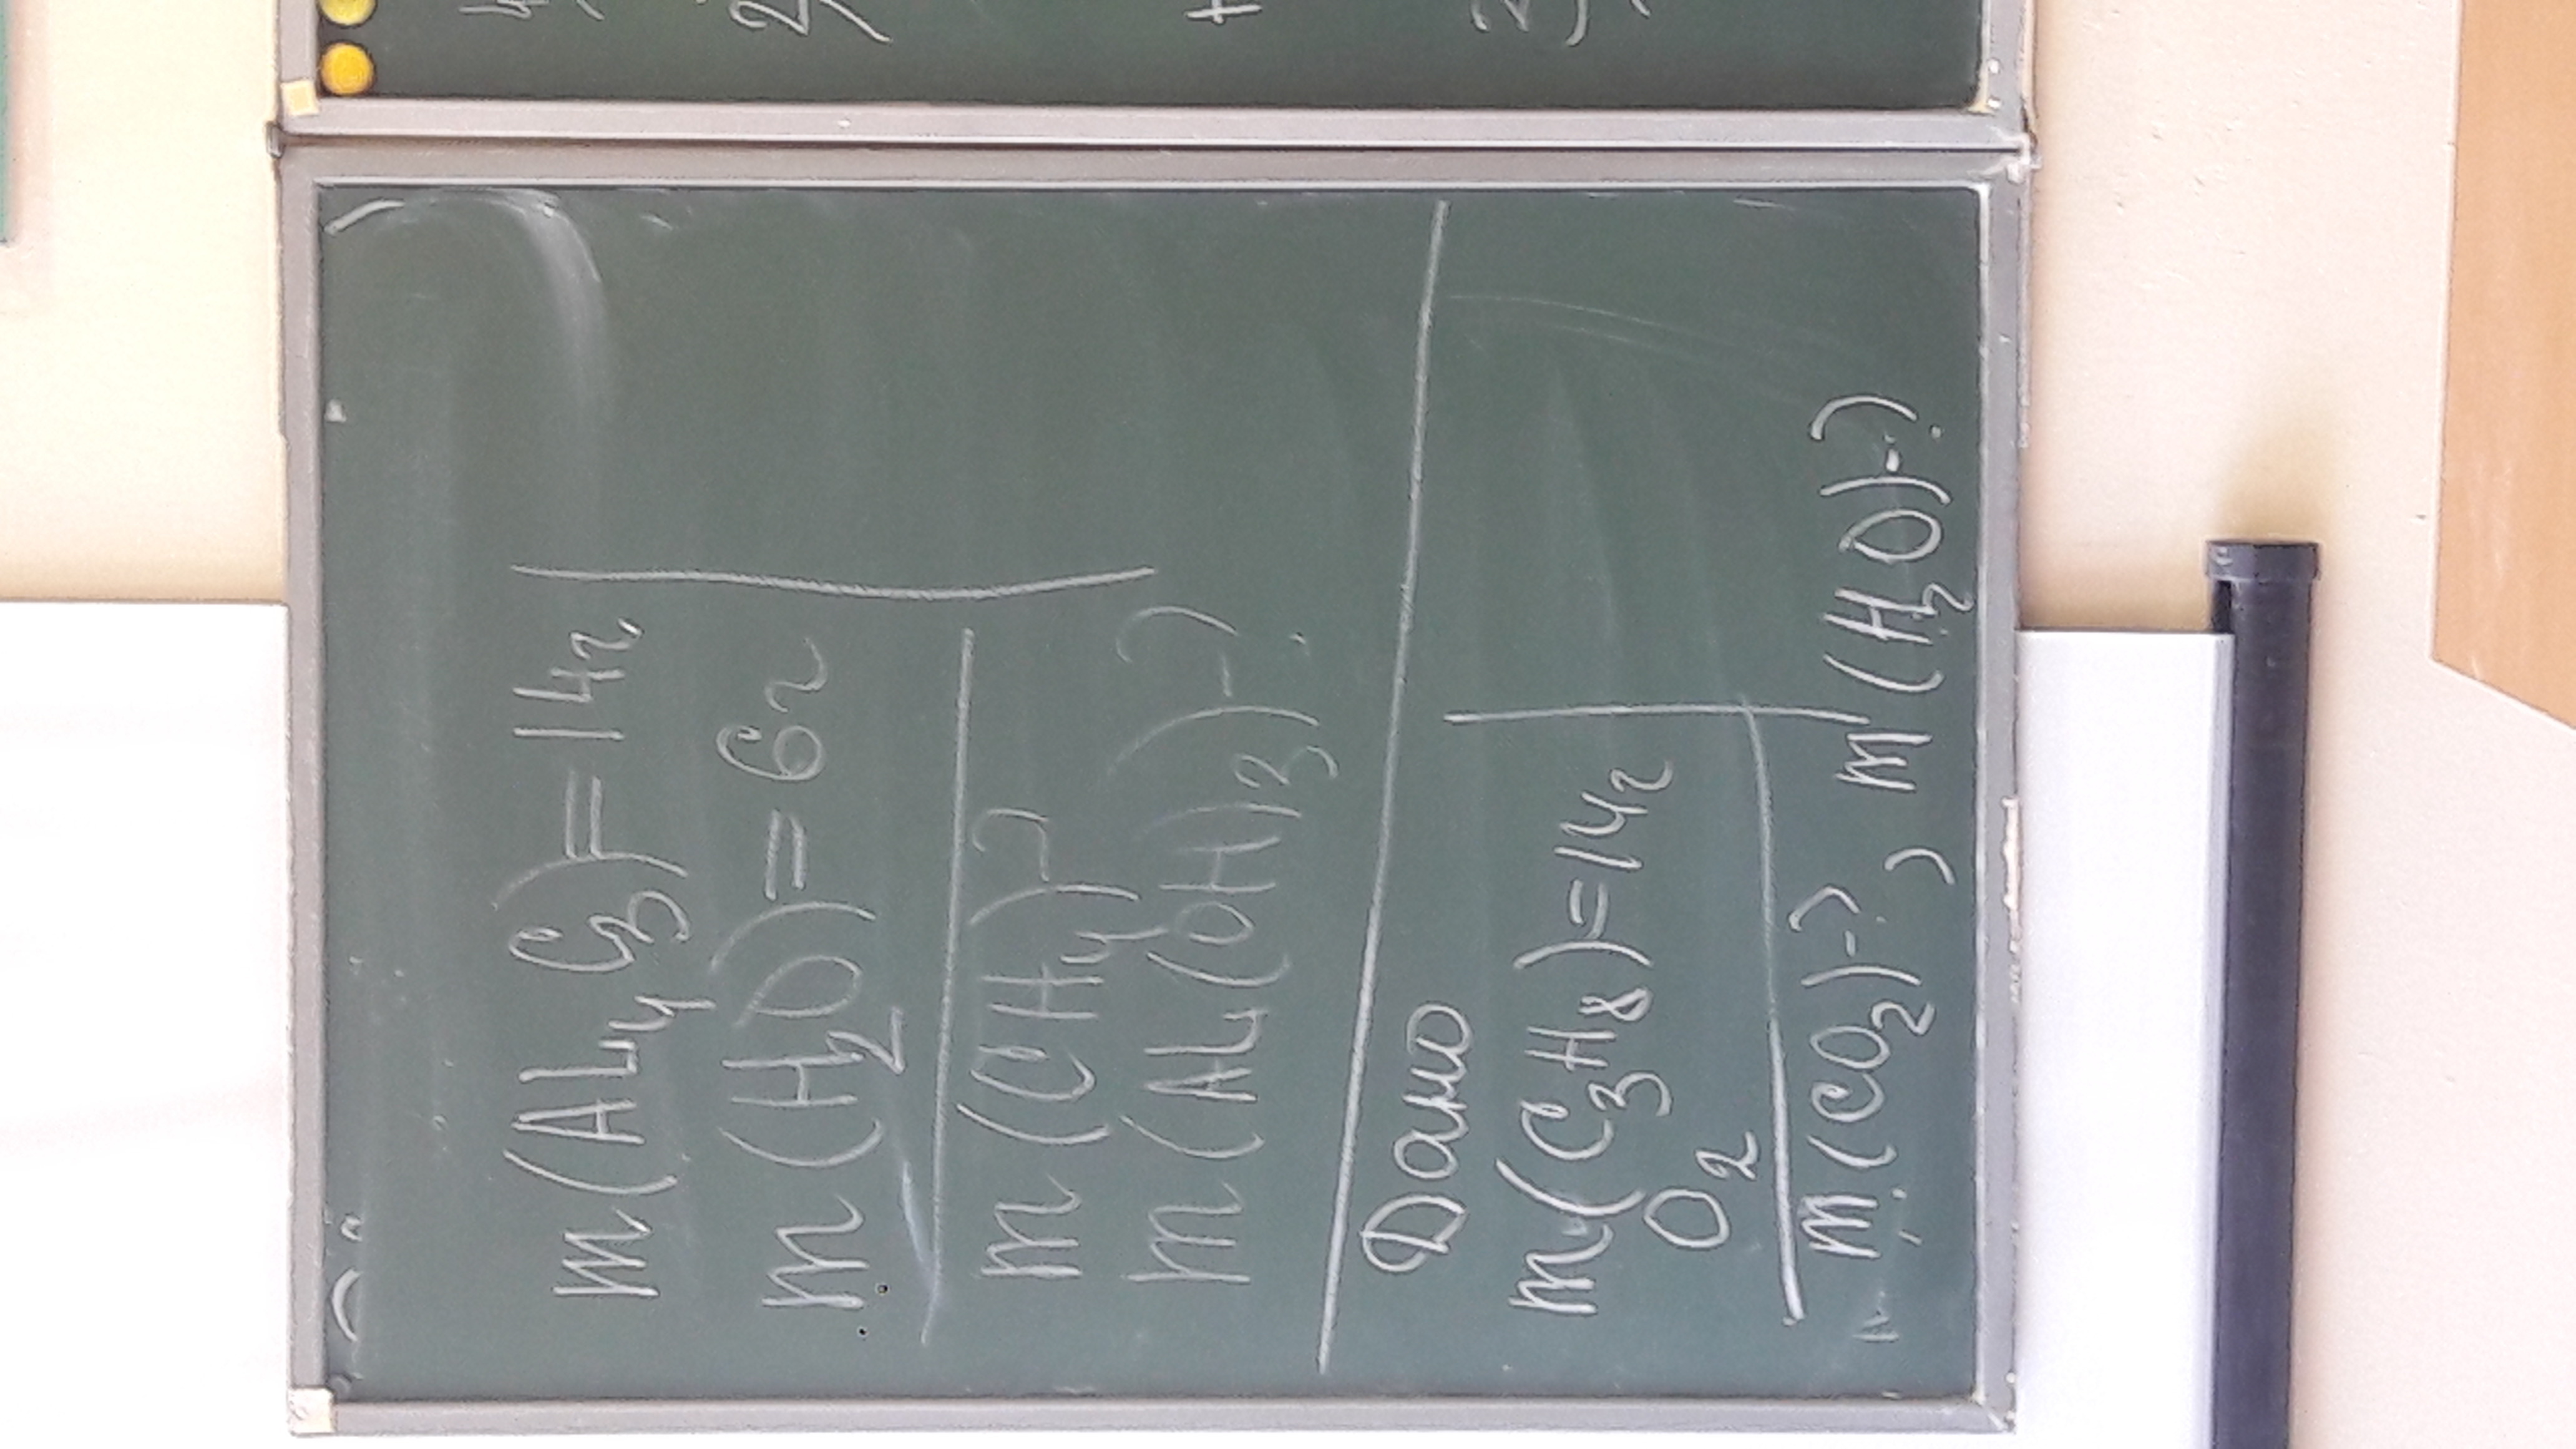 m(Al₄C₃)=14г
m(H₂O)=6г
m(CH₄)-?
m(Al(OH)₃)-?
Дано
m(C₃H₈)=14г
O₂
m(CO₂)-?, m(H₂O)-?